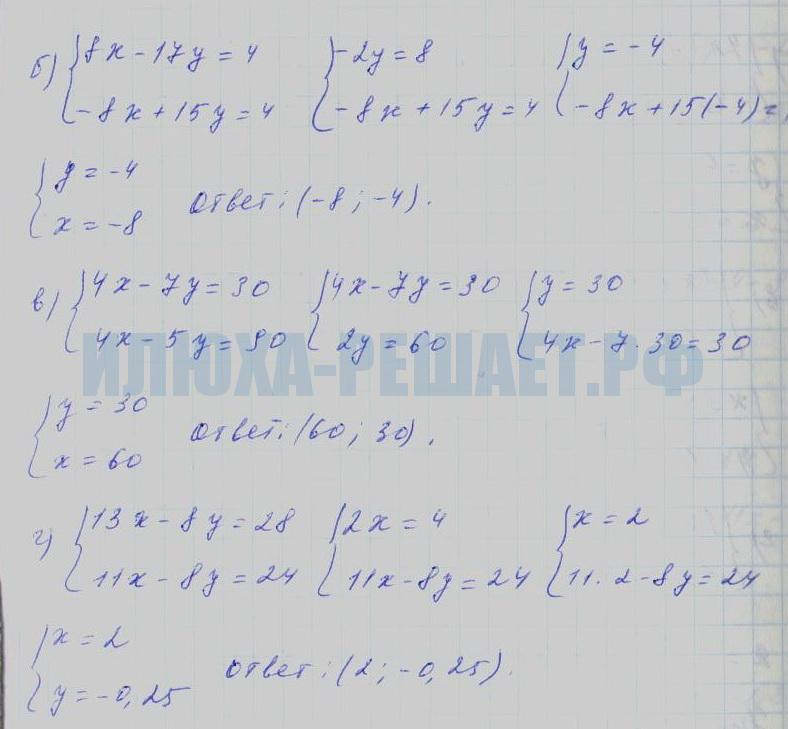 б) { 8x - 17y = 4 { -2y = 8 { y = -4
{ -8x + 15y = 4 { -8x + 15y = 4 { -8x + 15(-4) =
{ y = -4
{ x = -8 Ответ: (-8; -4).
в) { 4x - 7y = 30 { 4x - 7y = 30 { y = 30
{ 4x - 5y = 90 { 2y = 60 { 4x - 7 · 30 = 30
ИЛЮХА-РЕШАЕТ.РФ
{ y = 30
{ x = 60 Ответ: (60; 30).
г) { 13x - 8y = 28 { 2x = 4 { x = 2
{ 11x - 8y = 24 { 11x - 8y = 24 { 11 · 2 - 8y = 24
{ x = 2
{ y = -0,25 Ответ: (2; -0,25).